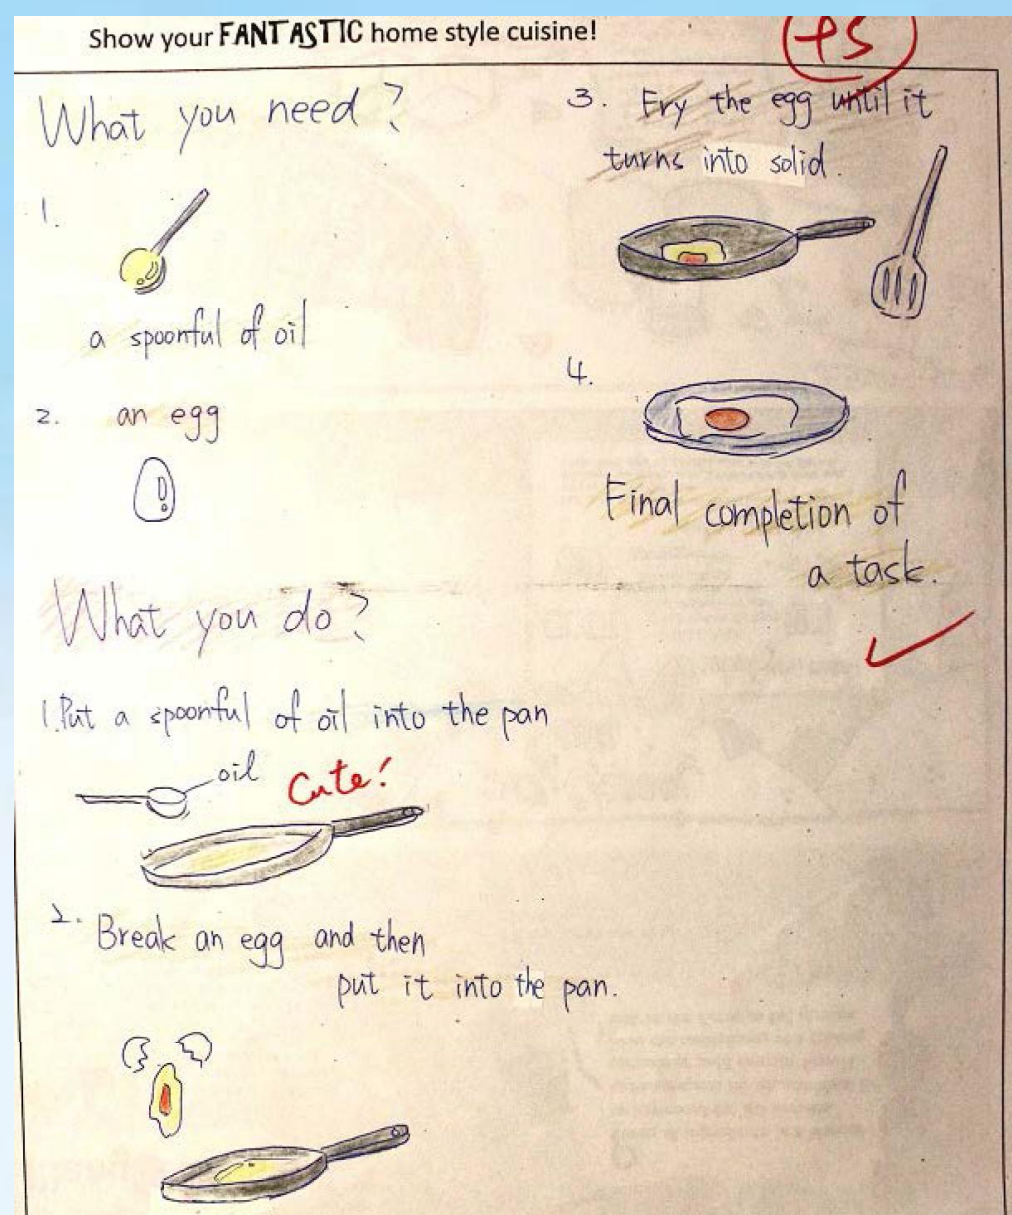 Show your FANTASTIC home style cuisine!
What you need?
1.
a spoonful of oil
2. an egg
What you do?
1. Put a spoonful of oil into the pan
oil
Cute!
2. Break an egg and then
put it into the pan.
3. Fry the egg until it
turns into solid.
4.
Final completion of
a task.